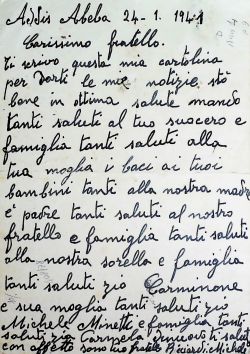 Addis Abeba 24-1.1941
Carissimo fratello.
Ti scrivo questa mia cartolina
per Darti le mie notizie sto
bene in ottima salute mando
tanti saluti al tuo suocero e
famiglia tanti saluti alla
tua moglia i baci ai tuoi
bambini tanti alla nostra madre
e padre tanti saluti al nostro
fratello e famiglia tanti saluti
alla nostra sorella e famiglia
tanti saluti zio Carminone
e sua moglia tanti saluti zio
Michele Minetti e famiglia tanti
saluti zia Carmela
con affetto sono tuo fratello